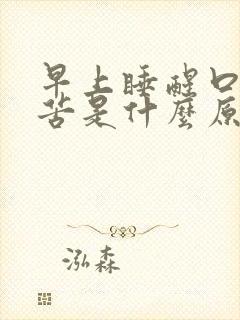 早上睡醒口
苦是什麼原
泓森